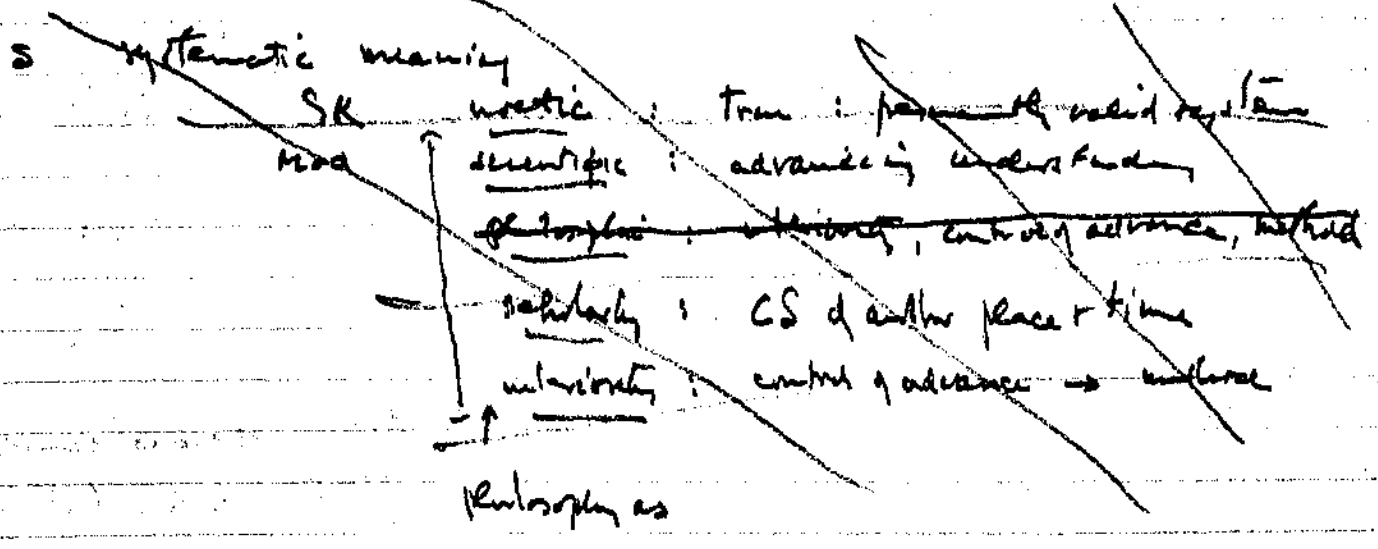 s systematic meaning
Sk noetic : true : permanently valid system
Mod scientific : advancing understanding
philosophic : interiority, control of advance, method
scholarly : CS of author place + time
interiority : control of advance → method
philosophy as